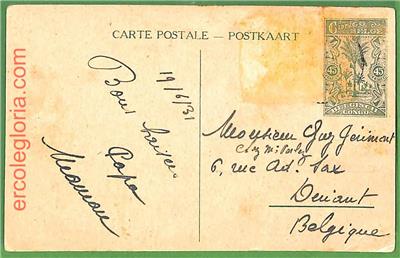 CARTE POSTALE – POSTKAART
CONGO BELGE
45 45
BELGISCH CONGO
19/6/31
Bons baisers
Papa
Maman
Monsieur Guy
6, rue Ad. Sax
Dinant
Belgique
ercolegloria.com